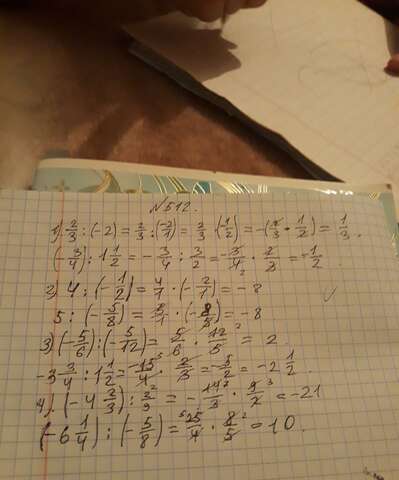 №512.
1) 2/3 : (-2) = 2/3 : (-2/1) = 2/3 · (-1/2) = -(2/3 · 1/2) = 1/3.
(-3/4) : 1 1/2 = -3/4 : 3/2 = -3/4 · 2/3 = -1/2
2) 4 : (-1/2) = 4/1 · (-2/1) = -8
5 : (-5/8) = 5/1 · (-8/5) = -8
3) (-5/6) : (-5/12) = 5/6 · 12/5 = 2.
-3 3/4 : 1 1/2 = -15/4 · 2/3 = -5/2 = -2 1/2
4) (-4 2/3) : 2/9 = -14/3 · 9/2 = -21
(-6 1/4) : (-5/8) = 25/4 · 8/5 = 10.